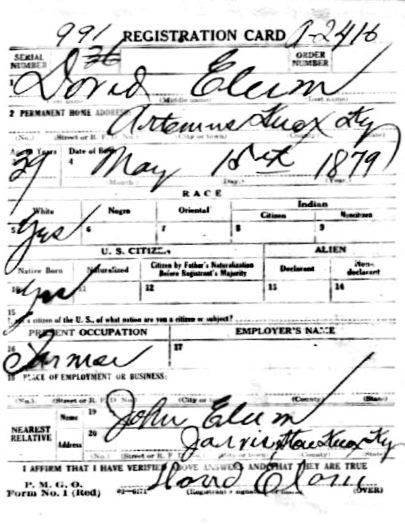 991 REGISTRATION CARD A-2416
SERIAL NUMBER 36 ORDER NUMBER
1 David Elum
(First name) (Middle name) (Last name)
2 PERMANENT HOME ADDRESS: Artemus Knox Ky
(No.) (Street or R. F. D. No.) (City or town) (County) (State)
Age in Years Date of Birth
39 4 May 1879
(Month) (Day) (Year)
RACE
White Negro Oriental Indian
Citizen Noncitizen
5 yes 6 7 8 9
U. S. CITIZEN ALIEN
Native Born Naturalized Citizen by Father's Naturalization Before Registrant's Majority Declarant Non-declarant
10 yes 11 12 13 14
15
If not a citizen of the U. S., of what nation are you a citizen or subject?
PRESENT OCCUPATION EMPLOYER'S NAME
16 Farmer 17
18 PLACE OF EMPLOYMENT OR BUSINESS:
(No.) (Street or R. F. D. No.) (City or town) (County) (State)
NEAREST RELATIVE Name 19 John Elum
Address 20 Jarvis Knox Ky
(No.) (Street or R. F. D. No.) (City or town) (County) (State)
I AFFIRM THAT I HAVE VERIFIED ABOVE ANSWERS AND THAT THEY ARE TRUE
P. M. G. O.
Form No. 1 (Red) 03-6171 (Registrant's signature or mark) (OVER)
David Elam